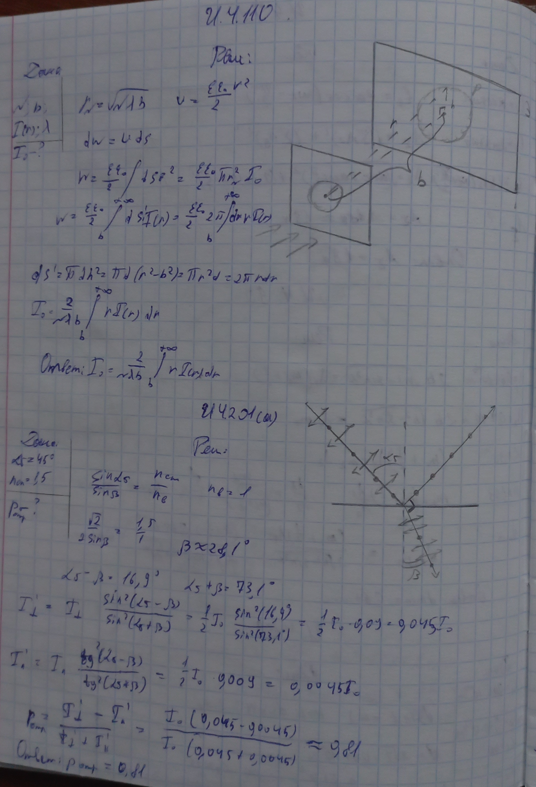 И.4.110.
Дано:
Реш:
r_N = √Nλb   v = εε₀v²/2
N, b,
I(r); λ
I₀ - ?
dW = v ds
W = εε₀/2 ∫ ds v² = εε₀/2 πr²_N I₀
W = εε₀/2 ∫_b^{+∞} ds' I(r) = εε₀/2 2π ∫_b^{+∞} dr r I(r)
ds' = πdh² = πd(r² - b²) = πr²d = 2πrdr
I₀ = 2/Nλb ∫_b^{+∞} r I(r) dr
Ответ: I₀ = 2/Nλb ∫_b^{+∞} r I(r) dr
b
И4201(а)
Дано:
Реш:
α = 45°
n_ст = 1,5
P_отр - ?
sinα/sinβ = n_ст/n_в   n_в = 1
√2/2sinβ = 1,5/1   β ≈ 28,1°
α - β = 16,9°   α + β = 73,1°
I'⊥ = I⊥ sin²(α-β)/sin²(α+β) = 1/2 I₀ sin²(16,9°)/sin²(73,1°) = 1/2 I₀ · 0,09 = 0,045I₀
I'∥ = I₀ tg²(α-β)/tg²(α+β) = 1/2 I₀ 0,009 = 0,0045I₀
P_отр = I'⊥ - I'∥ / I'⊥ + I'∥ = I₀(0,045 - 0,0045) / I₀(0,045 + 0,0045) ≈ 0,81
Ответ: P_отр = 0,81